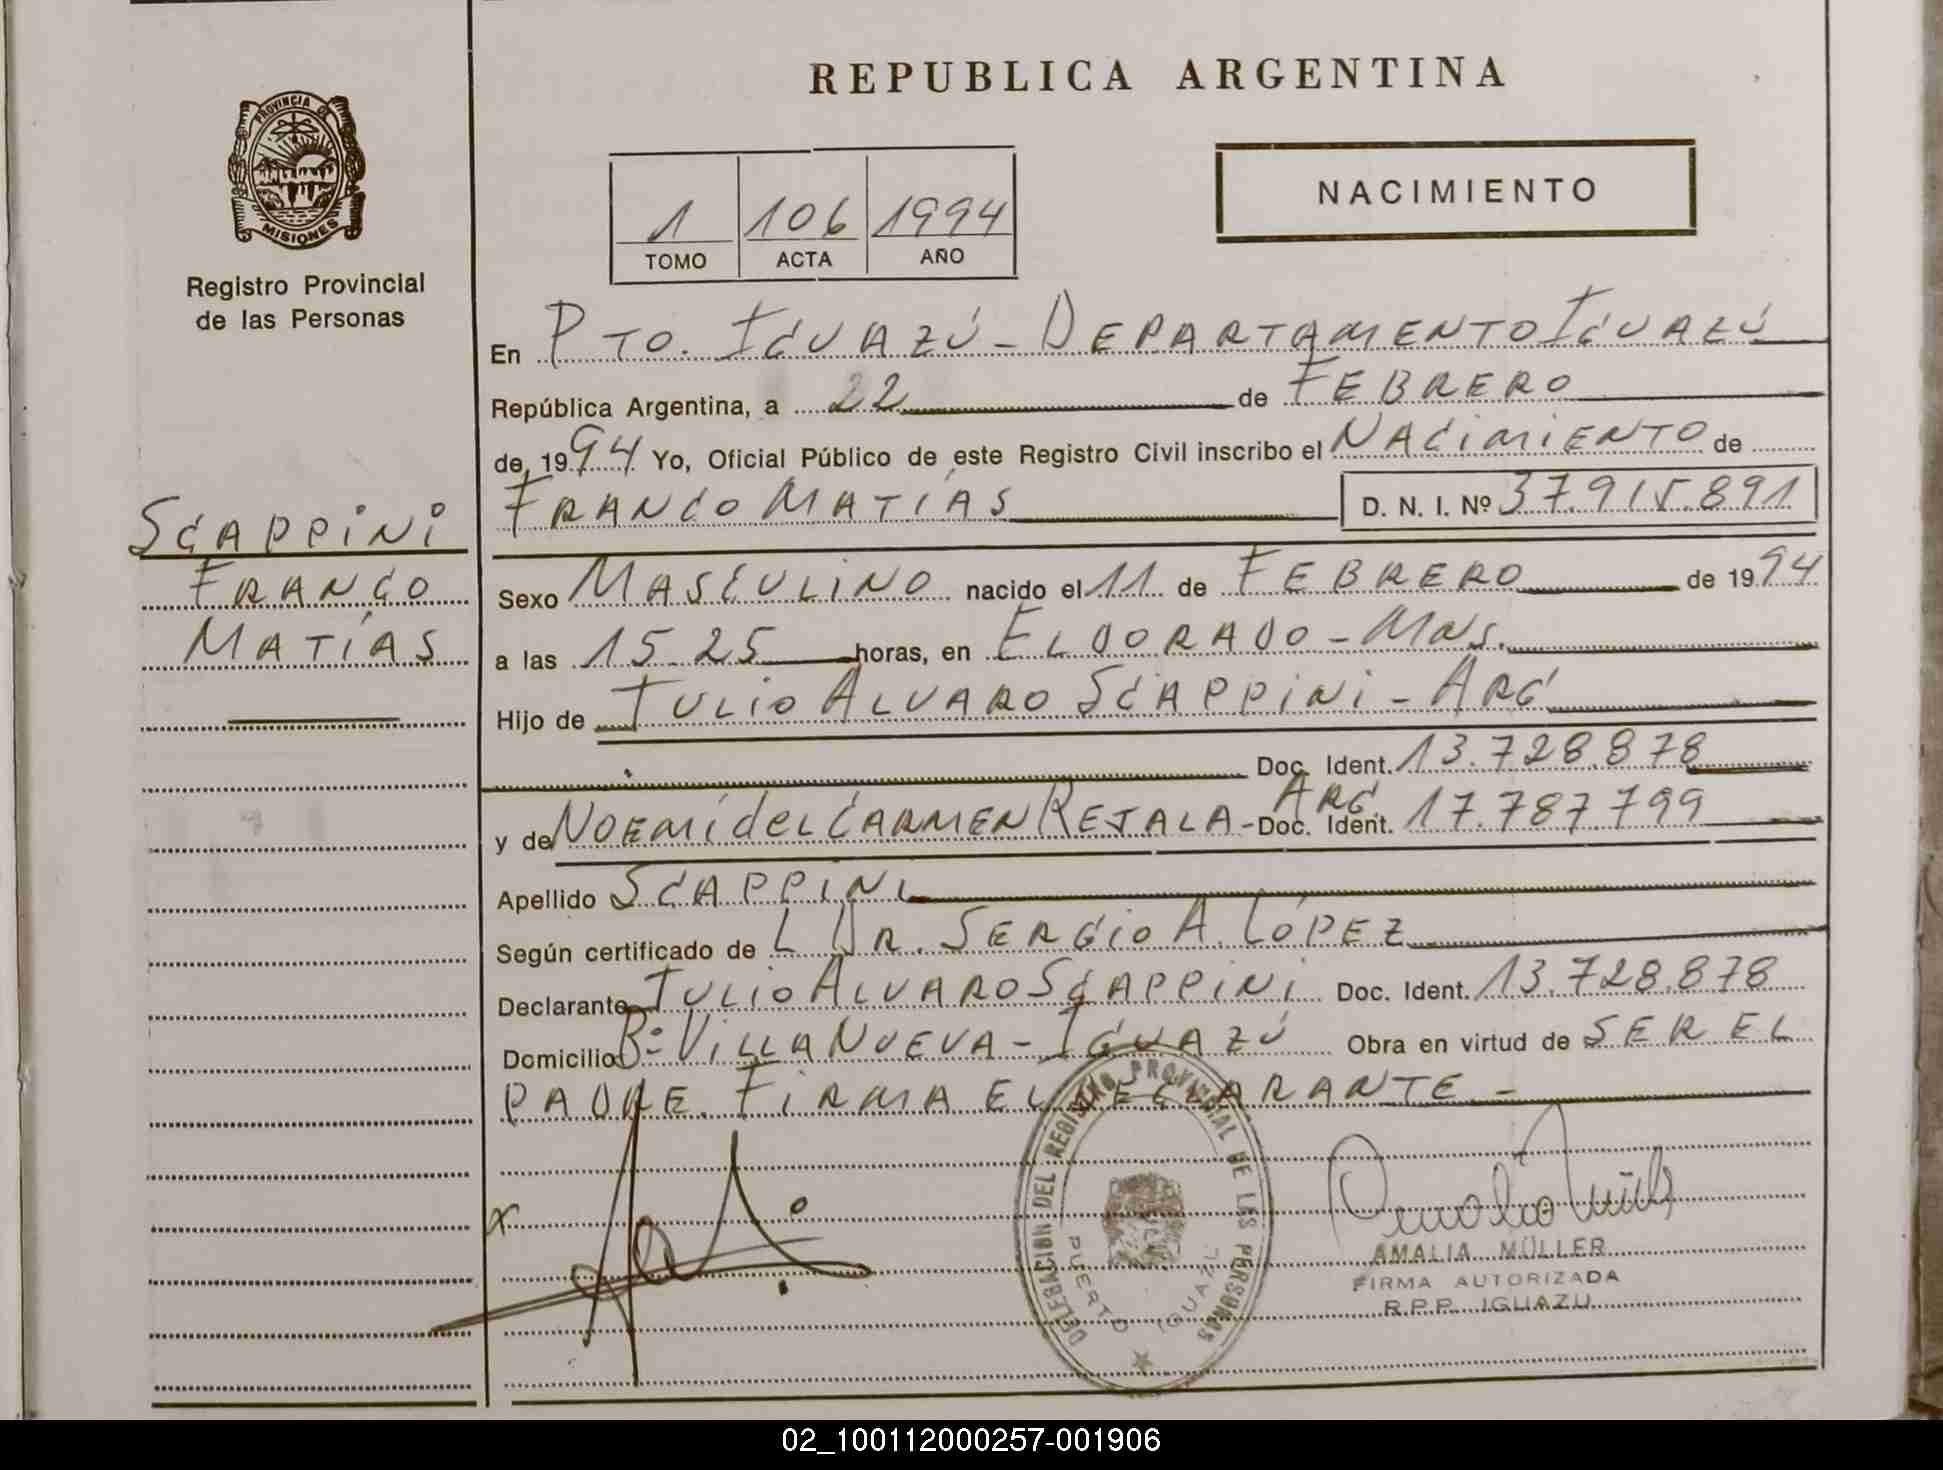 REPUBLICA ARGENTINA
PROVINCIA DE
MISIONES
Registro Provincial
de las Personas
1 106 1994
TOMO ACTA AÑO
NACIMIENTO
En PTO. IGUAZÚ - DEPARTAMENTO IGUAZÚ
República Argentina, a 22 de FEBRERO
de 1994 Yo, Oficial Público de este Registro Civil inscribo el NACIMIENTO de
FRANCO MATÍAS D. N. I. Nº 37.915.891
SCAPPINI
FRANCO
MATÍAS
Sexo MASCULINO nacido el 11 de FEBRERO de 1994
a las 15 25 horas, en ELDORADO - MNS.
Hijo de TULIO ALVARO SCAPPINI - ARG
Doc. Ident. 13.728.878
y de NOEMÍ del CARMEN REJALA - ARG. Doc. Ident. 17.787.799
Apellido SCAPPINI
Según certificado de L DR. SERGIO A. LÓPEZ
Declarante TULIO ALVARO SCAPPINI Doc. Ident. 13.728.878
Domicilio Bº VILLA NUEVA - IGUAZÚ Obra en virtud de SER EL
PADRE. FIRMA EL DECLARANTE -
x
DELEGACION DEL REGISTRO PROVINCIAL DE LAS PERSONAS
PUERTO IGUAZU
AMALIA MÜLLER
FIRMA AUTORIZADA
R.P.P. IGUAZU
02_100112000257-001906